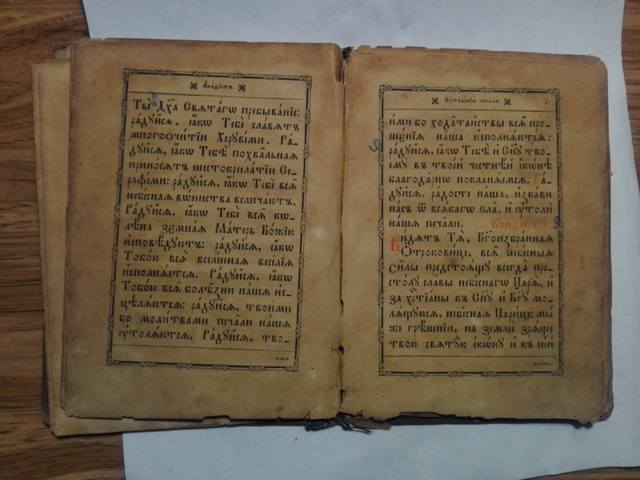 Акаѳїстъ
Ты̀ Дх҃а Свѧта́гѡ пребыва́нїе:
ра́дꙋйсѧ, ꙗ҆́кѡ Тебѐ сла́вѧтъ
многоочи́тїи Херꙋві́ми. Ра́-
дꙋйсѧ, ꙗ҆́кѡ Тебѣ̀ похва̑льнаѧ
прино́сѧтъ шестокрила́тїи Се-
рафі́ми: ра́дꙋйсѧ, ꙗ҆́кѡ Тебѐ всѧ̑
небе́снаѧ вѡ́инства велича́ютъ.
Ра́дꙋйсѧ, ꙗ҆́кѡ Тебѐ всѧ̑ кѡ-
лѣ́на земна́ѧ Ма́терь Бо́жїю
и҆сповѣ́дꙋютъ: ра́дꙋйсѧ, ꙗ҆́кѡ
Тобо́ю всѧ̀ вселе́ннаѧ весе́лїѧ
и҆сполнѧ́етсѧ. Ра́дꙋйсѧ, ꙗ҆́кѡ
Тобо́ю всѧ̑ болѣ̑зни на́шѧ и҆с-
цѣлѧ́ютсѧ: ра́дꙋйсѧ, твои́ми
бо моли́твами печа̑ли на́шѧ
ᲂу҆толѧ́ютсѧ. Ра́дꙋйсѧ, тво-
и́ми бо хода́тайствы всѧ̑ про-
шє́нїѧ на̑ша и҆сполнѧ́ютсѧ:
ра́дꙋйсѧ, ꙗ҆́кѡ Тебѣ̀ и҆ Сн҃ꙋ тво-
емꙋ̀ въ твое́й честнѣ́й і҆кѡ́нѣ
благода́рнѡ покланѧ́емсѧ. Ра́-
дꙋйсѧ, ра́досте на́ша, и҆зба́ви
на́съ ѿ всѧ́кагѡ ѕла̀, и҆ ᲂу҆толѝ
на́шѧ печа̑ли. Конда́къ
Ви́дѧтъ Тѧ̀, Бг҃оизбра́ннаѧ
Ѻ҆трокови́це, всѧ̑ небє́сныѧ
Си̑лы предстоѧ́щꙋ всегда̀ пре-
сто́лꙋ сла́вы небе́снагѡ Царѧ̀, и҆
за хрⷭ҇тїа́ны къ Сн҃ꙋ и҆ Бг҃ꙋ мо-
лѧ́щꙋюсѧ, небе́снаѧ Цари́це: мы́
же грѣ́шнїи, на землѝ зрѧ́ще
твою̀ свѧтꙋ́ю і҆кѡ́нꙋ и҆ къ не́й